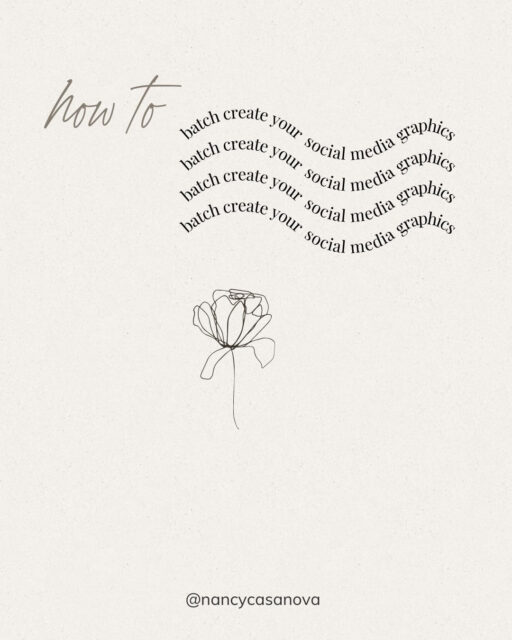 how to
batch create your social media graphics
batch create your social media graphics
batch create your social media graphics
batch create your social media graphics
@nancycasanova